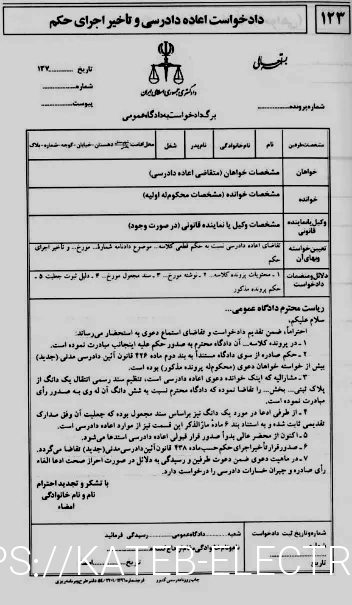 ۱۲۳
دادخواست اعاده دادرسی و تأخیر اجرای حکم
بسمه تعالی
دادگستری جمهوری اسلامی ایران
تاریخ ............ ۱۳۷
شماره ............
پیوست ............
شماره پرونده ............
برگ دادخواست به دادگاه عمومی
مشخصات طرفین
نام
نام خانوادگی
نام پدر
شغل
محل اقامت دهستان - خیابان - کوچه - شماره - پلاک
خواهان
مشخصات خواهان (متقاضی اعاده دادرسی)
خوانده
مشخصات خوانده (مشخصات محکوم‌له اولیه)
وکیل یا نماینده قانونی
مشخصات وکیل یا نماینده قانونی (در صورت وجود)
تعیین خواسته و بهای آن
تقاضای اعاده دادرسی نسبت به حکم قطعی کلاسه... موضوع دادنامه شماره... مورخ... و تأخیر اجرای حکم
دلائل و منضمات دادخواست
۱ـ محتویات پرونده کلاسه... ۲ـ نوشته مورخ... ۳ـ سند مجعول مورخ... ۴ـ دلیل ثبوت جعلیت ۵ـ حکم پرونده مذکور
ریاست محترم دادگاه عمومی...
سلام علیکم،
احتراماً، ضمن تقدیم دادخواست و تقاضای استماع دعوی به استحضار می‌رساند:
۱ـ در پرونده کلاسه... آن دادگاه محترم به صدور حکم علیه اینجانب مبادرت نموده است.
۲ـ حکم صادره از سوی دادگاه مستنداً به بند دوم ماده ۴۲۶ قانون آئین دادرسی مدنی (جدید) بیش از خواسته خواهان دعوی (محکوم‌له پرونده مذکور) بوده است.
۳ـ مشارالیه که اینک خوانده دعوی اعاده دادرسی است، تنظیم سند رسمی انتقال یک دانگ از پلاک ثبتی... بخش... را تقاضا نموده که دادگاه محترم نسبت به شش دانگ آن له وی به صدور رأی مبادرت نموده است.
۴ـ از طرفی ادعا در مورد یک دانگ نیز براساس سند مجعول بوده که جعلیت آن وفق مدارک تقدیمی ثابت شده و به استناد بند ۶ ماده مارالذکر این قسمت نیز از موارد اعاده دادرسی است.
۵ـ اکنون از محضر عالی بدواً صدور قرار قبولی اعاده دادرسی استدعا می‌شود.
۶ـ صدور قرار تأخیر اجرای حکم حسب ماده ۴۳۸ قانون آئین دادرسی مدنی (جدید) تقاضا می‌گردد.
۷ـ در ماهیت دعوی ضمن دعوت طرفین و رسیدگی به دلائل در صورت احراز صحت ادعا الغاء رأی صادره و جبران خسارات دادرسی را درخواست دارد.
با تشکر و تجدید احترام
نام و نام خانوادگی
امضاء
شماره و تاریخ ثبت دادخواست
شماره
تاریخ
شعبه ............ دادگاه عمومی ............ رسیدگی فرمائید
تاریخ
امضاء
HTTPS://KATEB-ELECTR